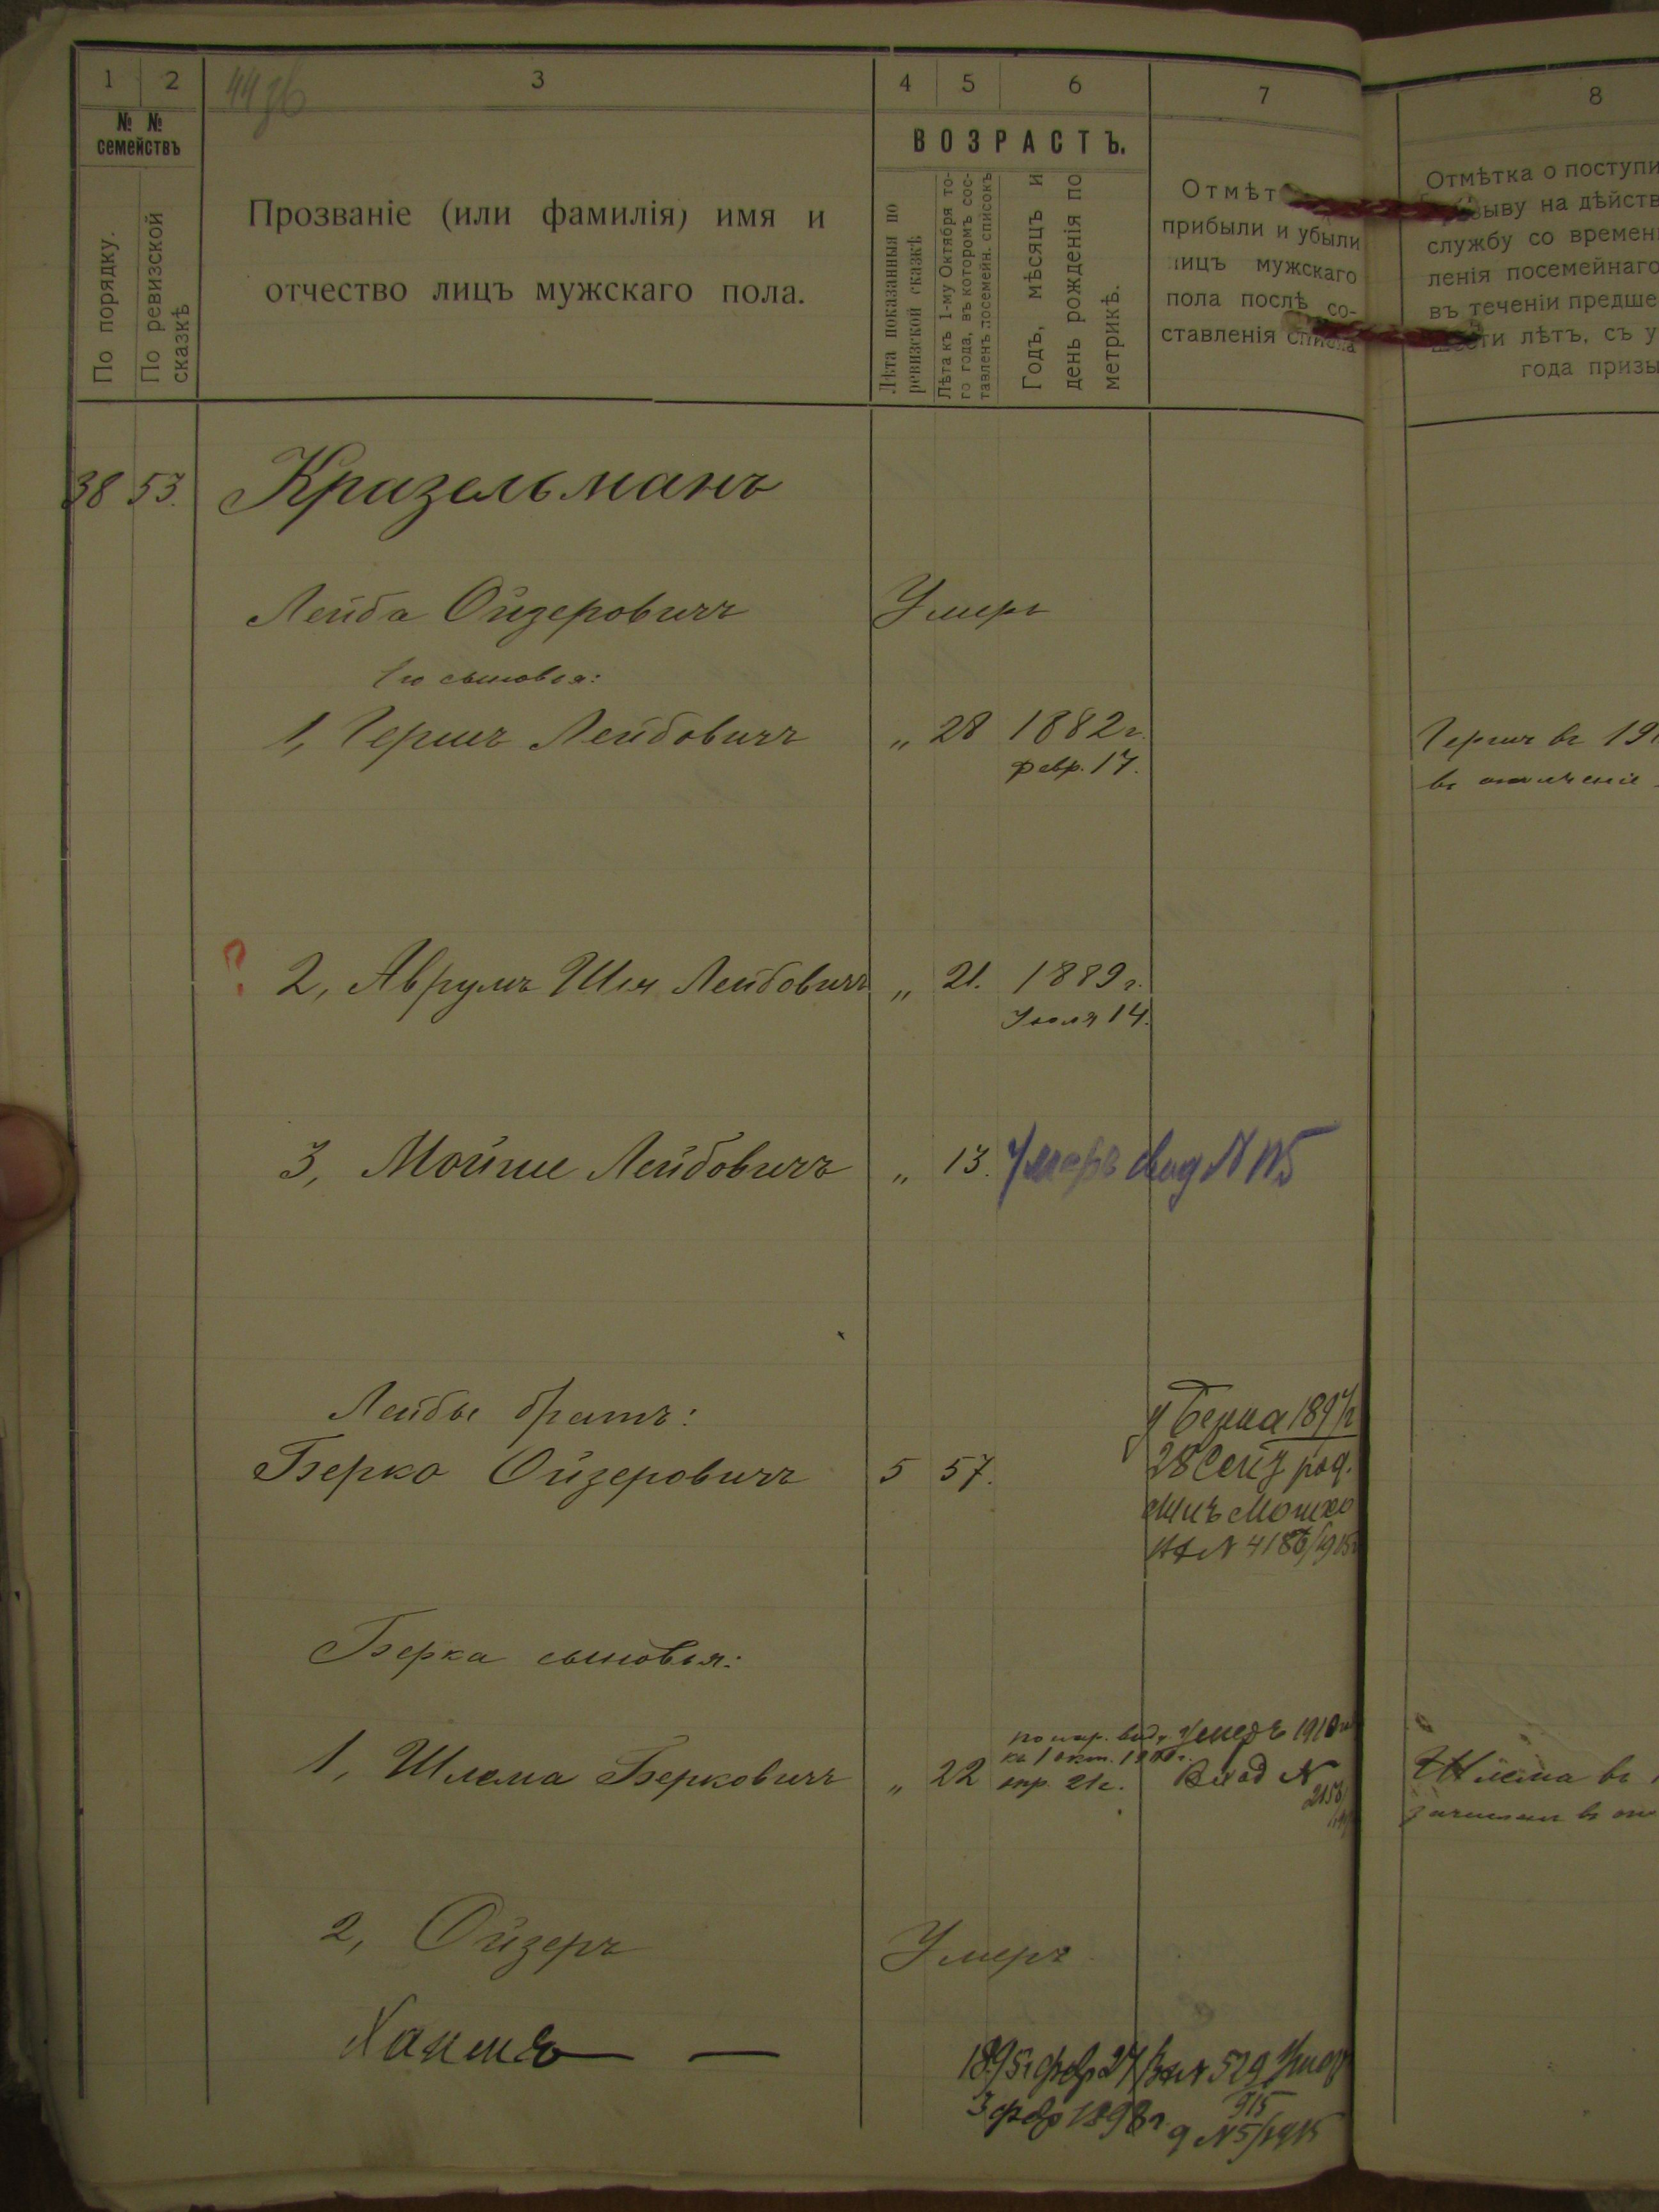 1 2 3 4 5 6 7 8
№ №
семействъ
По порядку.
По ревизской
сказкѣ
Прозваніе (или фамилія) имя и
отчество лицъ мужскаго пола.
ВОЗРАСТЪ.
Лѣта показанныя по
ревизской сказкѣ
Лѣта къ 1-му Октября то-
го года, въ которомъ сос-
тавленъ посемейн. списокъ
Годъ, мѣсяцъ и
день рожденія по
метрикѣ.
Отмѣт
прибыли и убыли
лицъ мужскаго
пола послѣ со-
ставленія списка
Отмѣтка о поступи
зыву на дѣйств
службу со времен
ленія посемейнаго
въ теченіи предше
шести лѣтъ, съ у
года призы
38 53. Кразельманъ
Лейба Ойзеровичъ Умеръ
Его сыновья:
1, Гершъ Лейбовичъ „ 28 1882 г.
февр. 17.
Гершъ въ 19
въ
? 2, Аврумъ Шія Лейбовичъ „ 21. 1889 г.
Іюля 14.
3, Мойше Лейбовичъ „ 13. Умеръ № 115
Лейбы братъ:
Берко Ойзеровичъ 5 57.
у Берка 1897 г
28 род.
сынъ Мошко
№ 4186/1915
Берка сыновья:
1, Шлема Берковичъ „ 22
по нар. виду
къ 1 окт. 1910 г.
опр. 21 г.
Умеръ 1910
Вход № 2158
Шлема въ
зачисленъ въ
2, Ойзеръ Умеръ
Хаимъ —
1895 г февр 27 № 529
3 февр 1898 г. № 5/1915